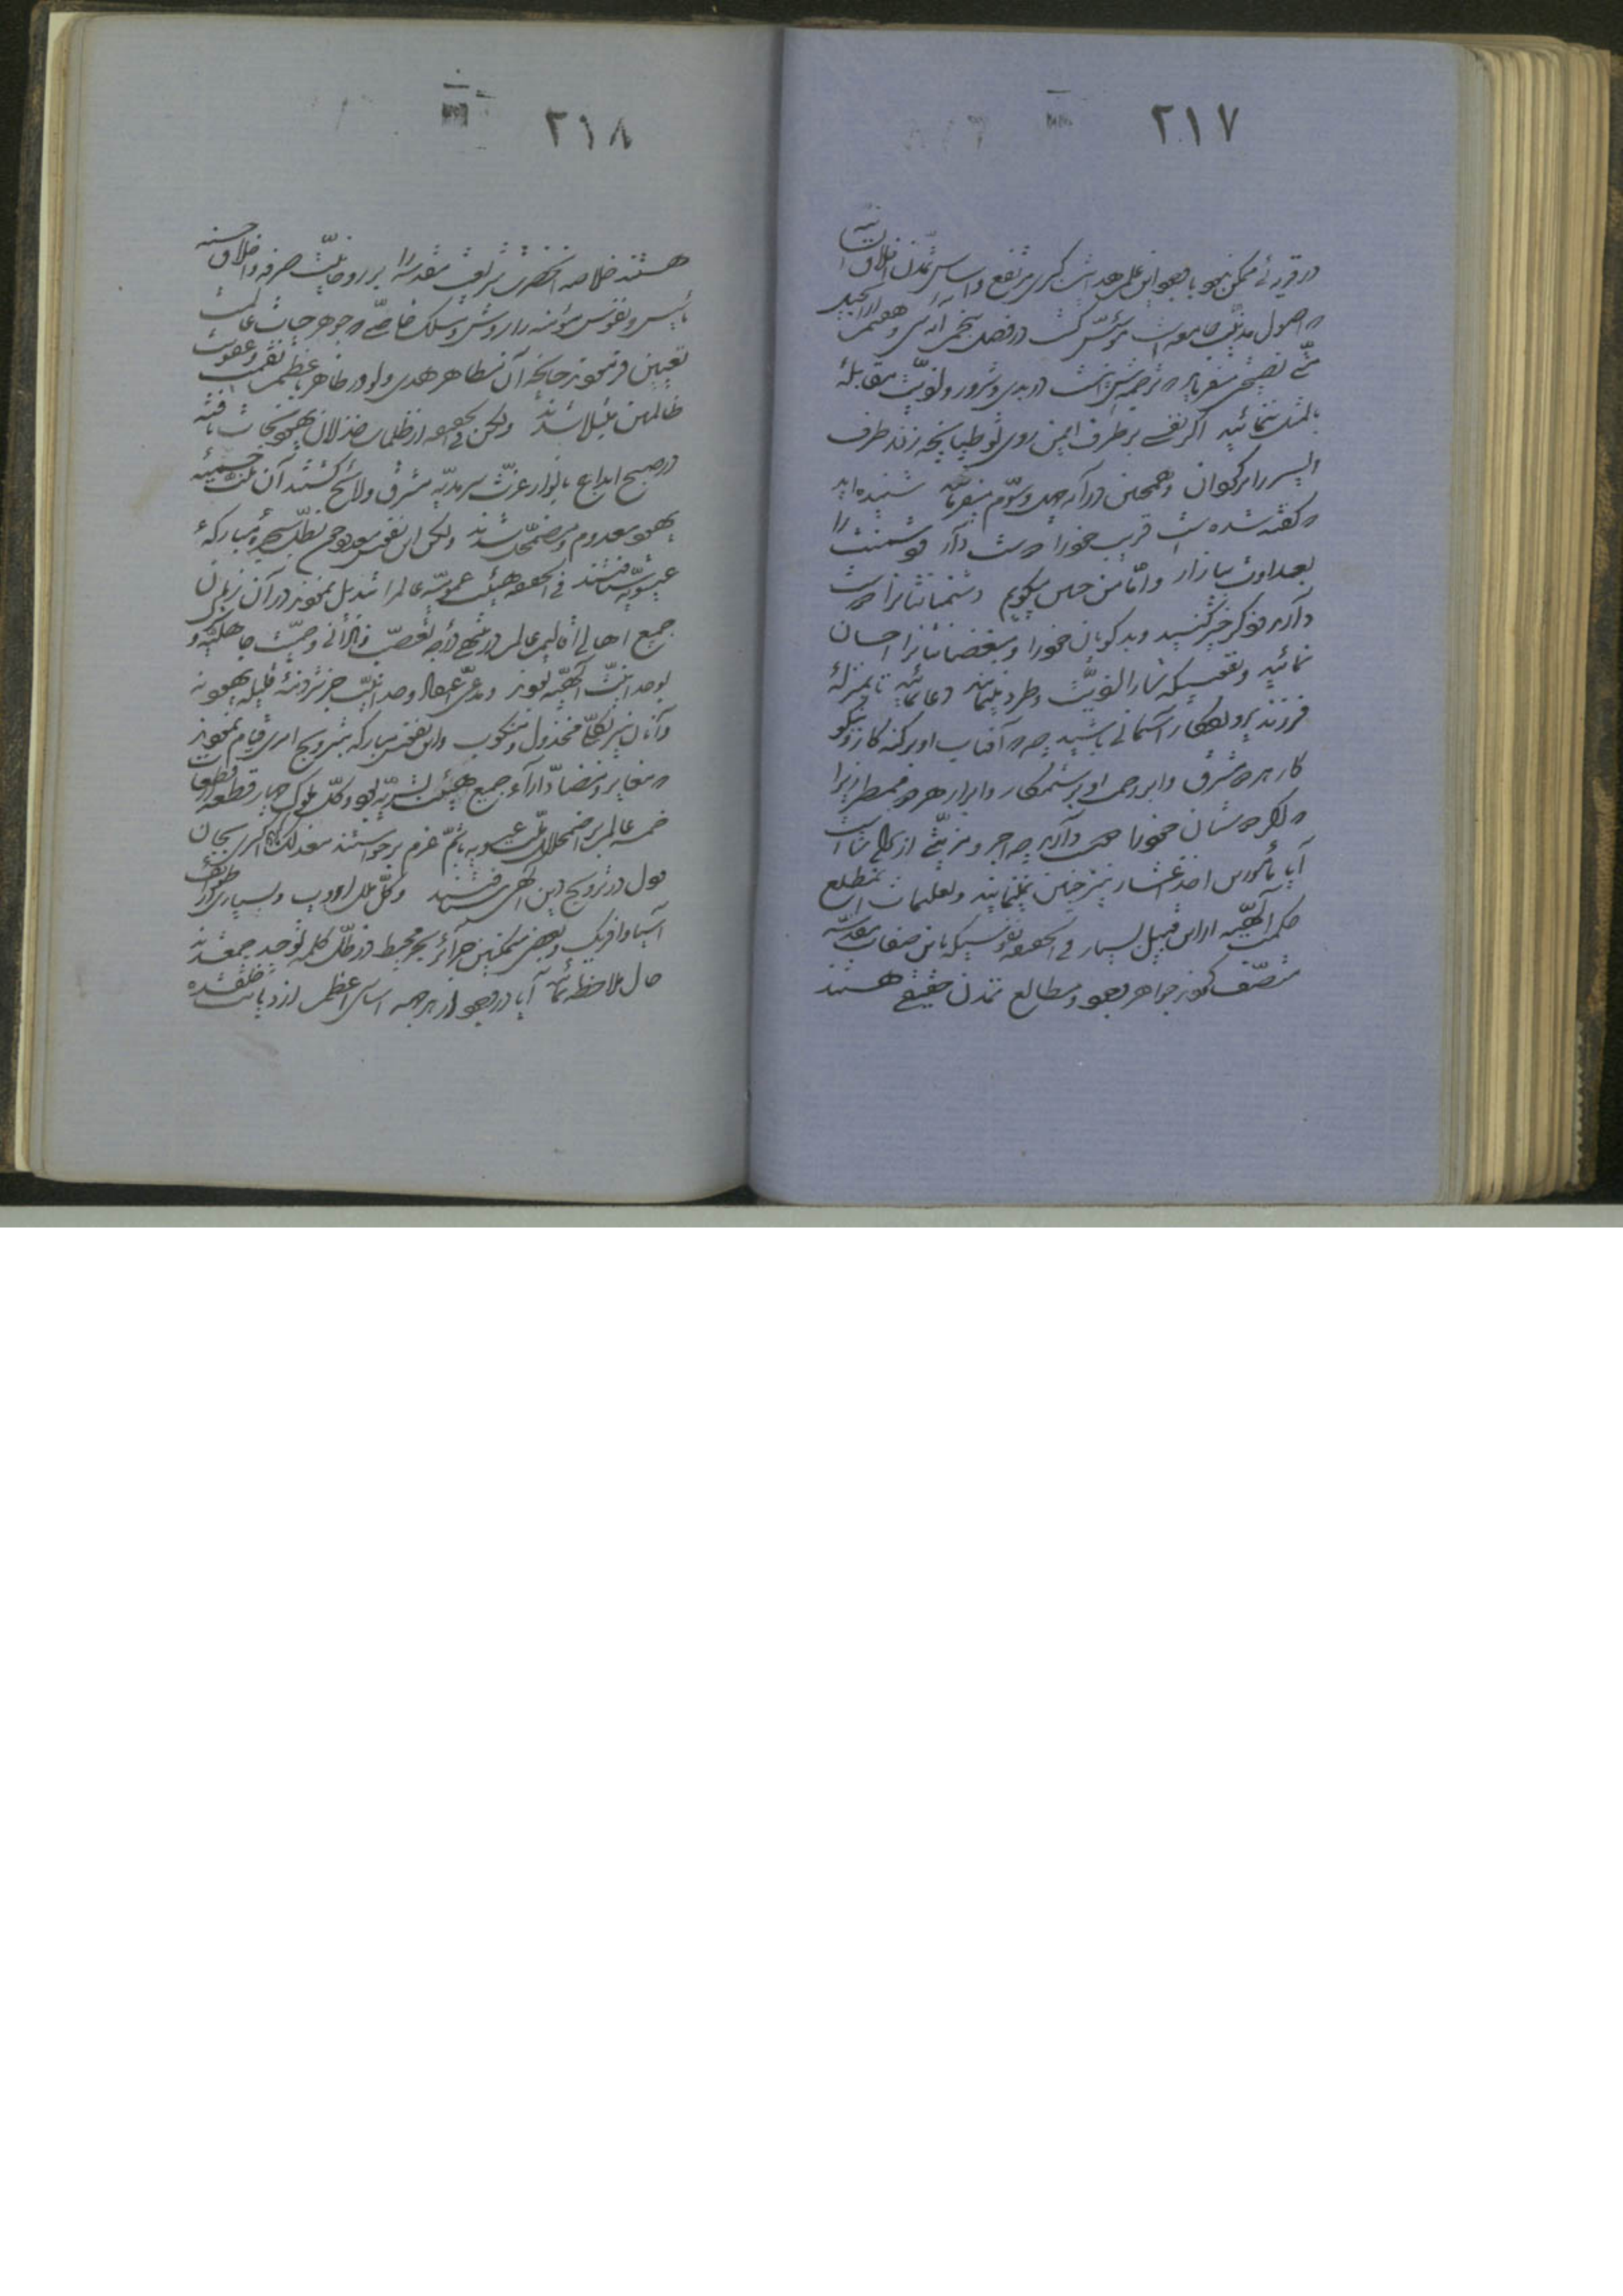 ٢١٧
در قوۀ بشریه ممکن بود باوجود این علم هدایت کبری مرتفع و اساس تمدن اخلاق انسانیه
و اصول مدنیت جامعه مؤسس گشت در فصل پنجم آیه سی و هفتم از انجیل
متی نصیحتی میفرماید که ترجمه‌اش اینست در بدی و شرور و اذیت مقابله
بالمثل ننمائید اگر نفسی بر طرف ایمن روی تو طپانچه زند طرف
ایسر را برگردان و همچنین در آیه چهل و سوم میفرماید شنیده‌اید
که گفته شده است قریب خود را دوست دار و دشمنت را
بعداوت میازار و اما من چنین میگویم دشمنانتانرا دوست
دارید و ذکر خیر کنید بدگویان خود را و مبغضانتانرا احسان
نمائید و نفوسیکه شما را اذیت و طرد مینمایند دعا نمائید تا بمنزلۀ
فرزند پروردگار آسمانی باشید چه که آفتاب او بر گنه‌کار و نیکو
کار هر دو مشرق و ابر رحمت او بر ستمکار و ابرار هر دو ممطر زیرا
که اگر دوستان خود را دوست دارید چه اجر و مزیتی از برای شماست
آیا مأمورین اخذ عشار نیز چنین نمینمایند و تعلیمات آن مطلع
حکمت الهیه از این قبیل بسیار فی الحقیقه نفوسیکه باین صفات مقدسه
متصف گردند جواهر وجود و مطالع تمدن حقیقی هستند
٢١٨
هستند خلاصه آنحضرت شریعت مقدسه را بر روحانیت صرفه و اخلاق حسنه
تأسیس و نفوس مؤمنه را روش و مسلک خاصی که جوهر حیات عالم است
تعیین فرمودند چنانچه آن مظاهر هدی ولو در ظاهر باعظم نقمت و عقوبت
ظالمین مبتلا شدند ولکن فی الحقیقه از ظلمات خذلان یهود نجات یافته
در صبح ابداع بانوار عزت سرمدیه مشرق و لائح گشتند آن ملت جسیمه
یهود معدوم و مضمحل شدند ولکن این نفوس معدود چون بظل شجرۀ مبارکۀ
عیسویه شتافتند فی الحقیقه هیئت عمومیۀ عالم را تبدیل نمودند در آن زمان
جمیع اهالی اقالیم عالم در منتهی درجه تعصب و نادانی و حمیت جاهلیه و
بوحدانیت الهیه نبودند و مدعی اعتقاد وحدانیت جز شرذمۀ قلیله یهود نه
و آنان نیز بکلی مخذول و منکوب و این نفوس مبارکه بترویج امری قیام نمودند
که مغایر و متضاد آراء جمیع هیئت بشریه بود و کل ملوک چهار قطعه از قطعات
خمسه عالم بر اضمحلال ملت عیسویه باتم عزم برخواستند معذلک بالاخره اکثری بجان
و دل در ترویج دین الهی شتافتند و کل ملل اوروپ و بسیاری از طوائف
آسیا و افریک و بعضی متمکنین جزائر بحر محیط در ظل کلمه توحید جمع شدند
حال ملاحظه نمائید آیا در وجود از هر جهه اساسی اعظم از دیانت خلق شده